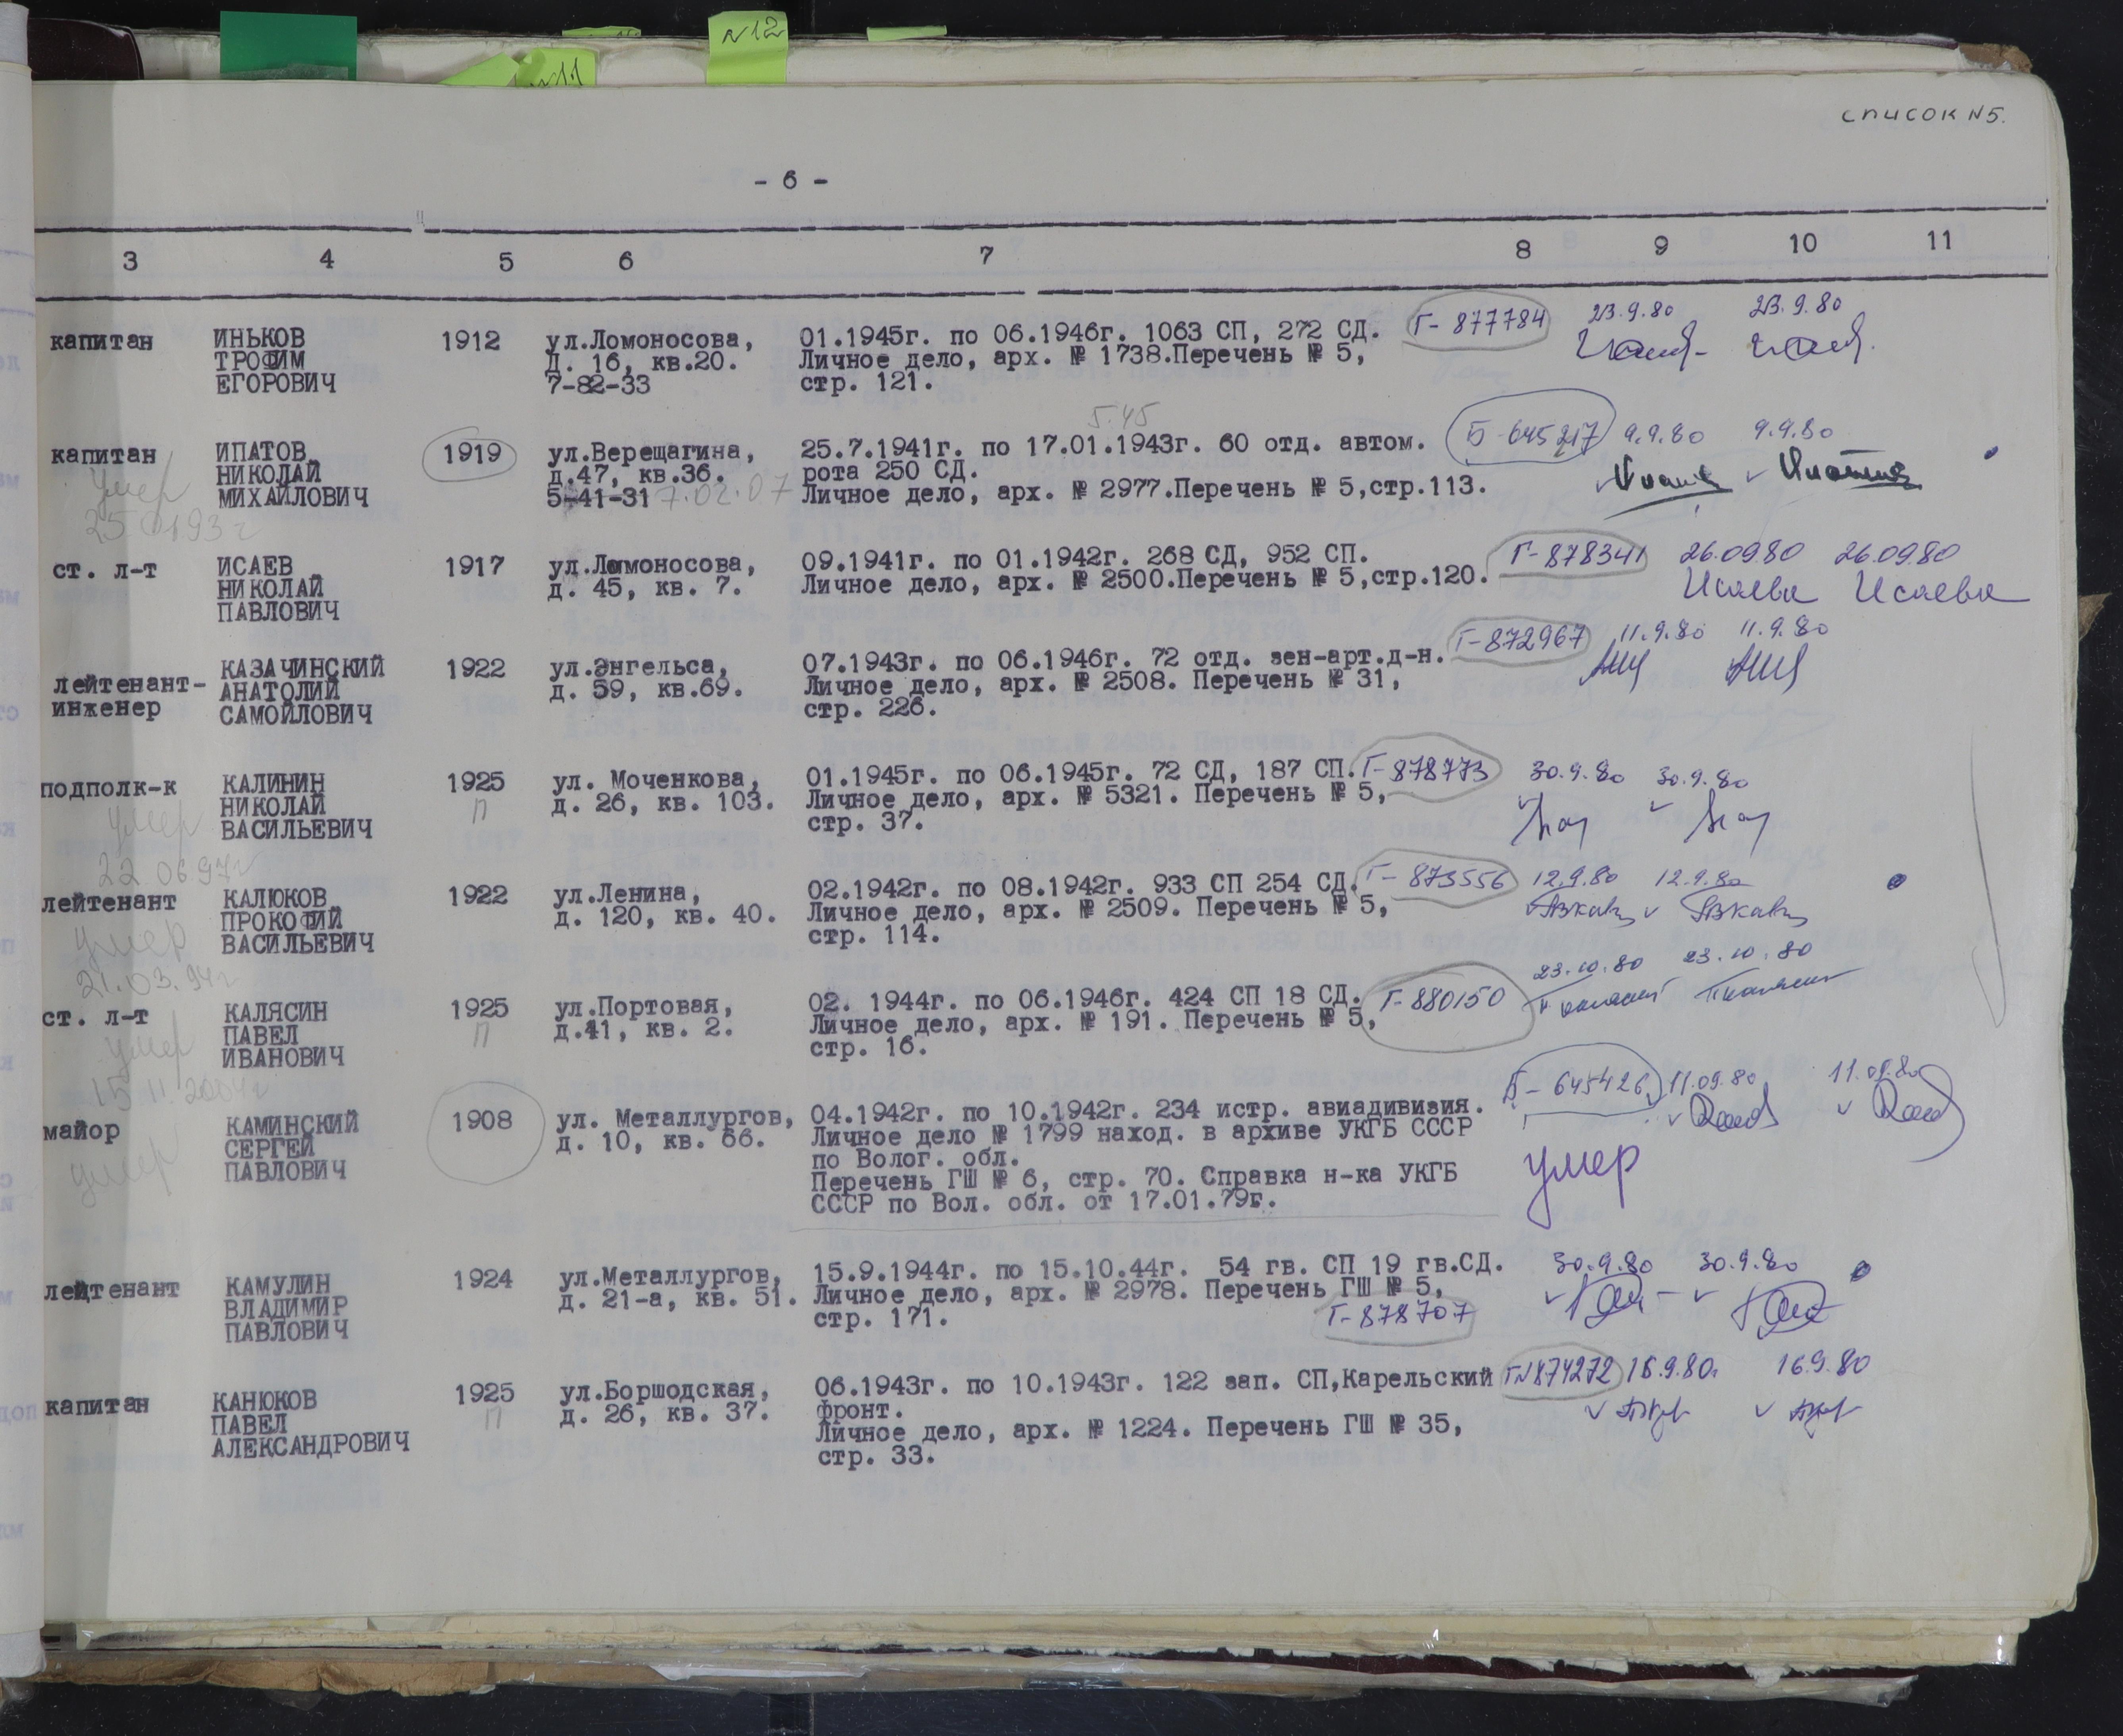 N12
N11
список N5.
- 6 -
3 4 5 6 7 8 9 10 11
капитан ИНЬКОВ 1912 ул.Ломоносова, 01.1945г. по 06.1946г. 1063 СП, 272 СД. Г- 877784 23.9.80 23.9.80
ТРОФИМ д. 16, кв.20. Личное дело, арх. № 1738.Перечень № 5,
ЕГОРОВИЧ 7-82-33 стр. 121.
5.45
капитан ИПАТОВ 1919 ул.Верещагина, 25.7.1941г. по 17.01.1943г. 60 отд. автом. Б-645217 9.9.80 9.9.80
умер НИКОЛАЙ д.47, кв.36. рота 250 СД.
МИХАЙЛОВИЧ 5-41-31 7.02.07 Личное дело, арх. № 2977.Перечень № 5,стр.113.
25.01.93г
ст. л-т ИСАЕВ 1917 ул.Ломоносова, 09.1941г. по 01.1942г. 268 СД, 952 СП. Г-878341 26.09.80 26.09.80
НИКОЛАЙ д. 45, кв. 7. Личное дело, арх. № 2500.Перечень № 5,стр.120. Исаева Исаева
ПАВЛОВИЧ
КАЗАЧИНСКИЙ 1922 ул.Энгельса, 07.1943г. по 06.1946г. 72 отд. зен-арт.д-н. Г-872967 11.9.80 11.9.80
лейтенант- АНАТОЛИЙ д. 59, кв.69. Личное дело, арх. № 2508. Перечень № 31,
инженер САМОЙЛОВИЧ стр. 226.
подполк-к КАЛИНИН 1925 ул. Моченкова, 01.1945г. по 06.1945г. 72 СД, 187 СП. Г-878773 30.9.80 30.9.80
умер НИКОЛАЙ П д. 26, кв. 103. Личное дело, арх. № 5321. Перечень № 5,
ВАСИЛЬЕВИЧ стр. 37.
22.06.97г
лейтенант КАЛЮКОВ 1922 ул.Ленина, 02.1942г. по 08.1942г. 933 СП 254 СД. Г- 873556 12.9.80 12.9.80
умер ПРОКОФИЙ д. 120, кв. 40. Личное дело, арх. № 2509. Перечень № 5,
ВАСИЛЬЕВИЧ стр. 114.
21.03.94г
ст. л-т КАЛЯСИН 1925 ул.Портовая, 02. 1944г. по 06.1946г. 424 СП 18 СД. Г-880150 23.10.80 23.10.80
умер ПАВЕЛ П д.41, кв. 2. Личное дело, арх. № 191. Перечень № 5,
ИВАНОВИЧ стр. 16.
15.11.2004г
майор КАМИНСКИЙ 1908 ул. Металлургов, 04.1942г. по 10.1942г. 234 истр. авиадивизия. Б-645426 11.09.80 11.09.80
умер СЕРГЕЙ д. 10, кв. 66. Личное дело № 1799 наход. в архиве УКГБ СССР
ПАВЛОВИЧ по Волог. обл. умер
Перечень ГШ № 6, стр. 70. Справка н-ка УКГБ
СССР по Вол. обл. от 17.01.79г.
лейтенант КАМУЛИН 1924 ул.Металлургов, 15.9.1944г. по 15.10.44г. 54 гв. СП 19 гв.СД. 30.9.80 30.9.80
ВЛАДИМИР д. 21-а, кв. 51. Личное дело, арх. № 2978. Перечень ГШ № 5,
ПАВЛОВИЧ стр. 171. Г-878707
капитан КАНЮКОВ 1925 ул.Боршодская, 06.1943г. по 10.1943г. 122 зап. СП,Карельский ГN874272 16.9.80г 16.9.80
ПАВЕЛ П д. 26, кв. 37. фронт.
АЛЕКСАНДРОВИЧ Личное дело, арх. № 1224. Перечень ГШ № 35,
стр. 33.